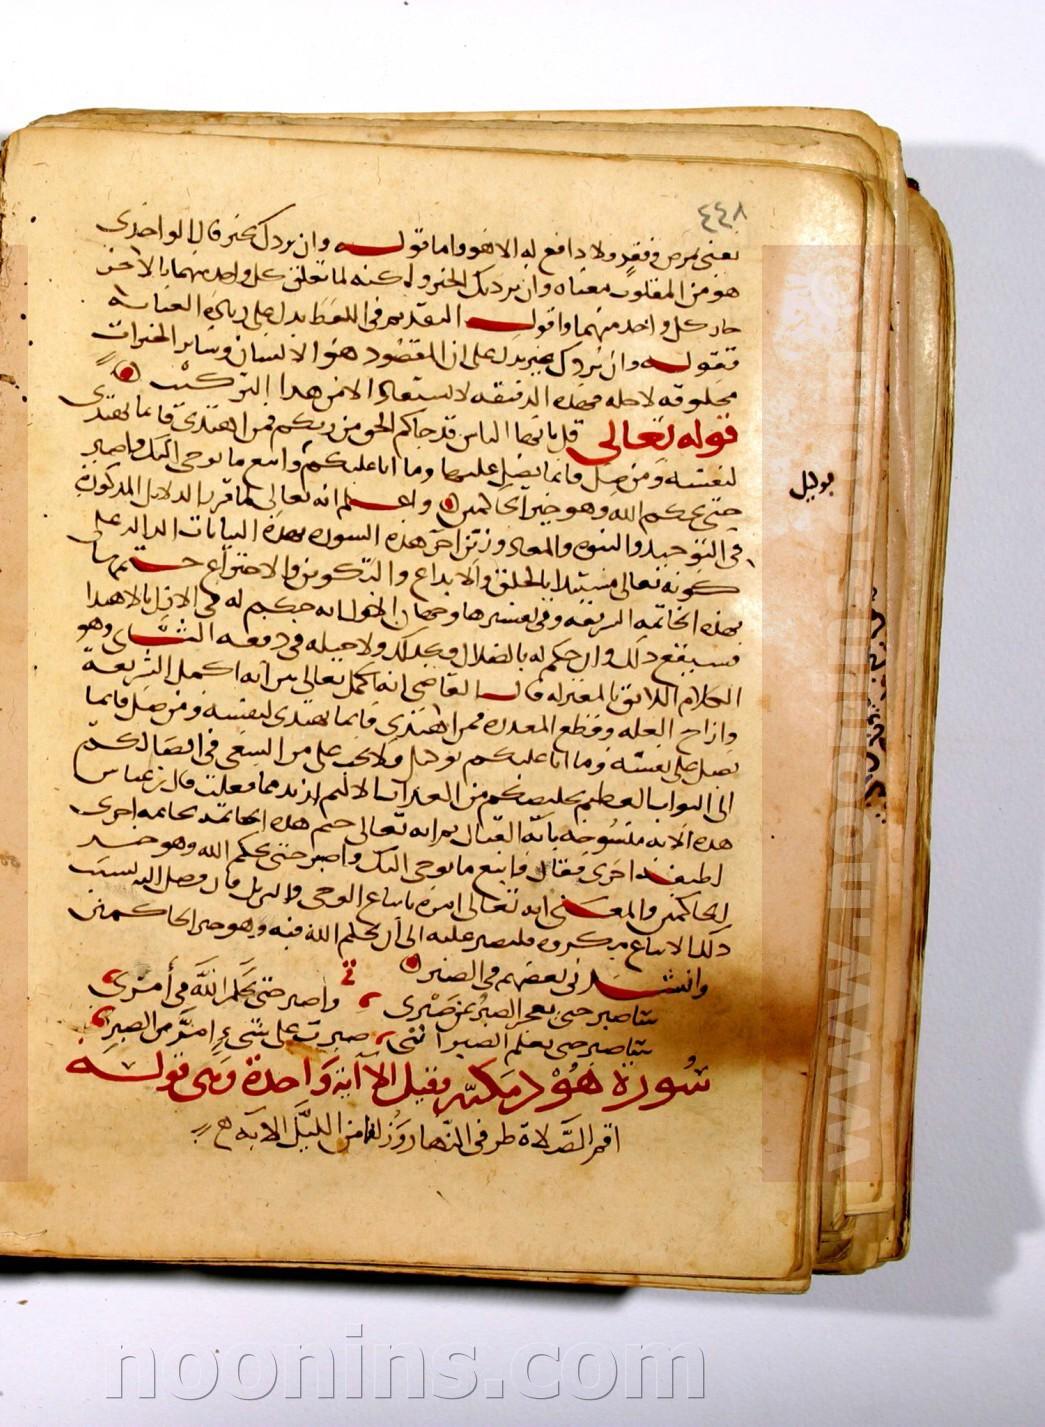 ٤٤٨
يعنى بمرض وفقر ولا دافع له الا هو واما قوله وان يردك بخير قال الواحدى
هو من المقلوب معناه وان يرد بك الخير ولكنه لما تعلق كل واحد منهما بالاخر
جاز كل واحد منهما واقول التقديم فى اللفظ يدل على زيادة العناية
فقوله وان يردك بخير يدل على ان المقصود هو الانسان وساير الخيرات
مخلوقه لاجله فهذه الدقيقه لا تستفاد الا من هذا التركيب
قوله تعالى قل يا ايها الناس قد جاكم الحق من ربكم فمن اهتدى فانما يهتدى
لنفسه ومن ضل فانما يضل عليها وما انا عليكم واتبع ما يوحى اليك واصبر
بوكيل
حتى يحكم الله وهو خير الحاكمين واعلم انه تعالى لما قرر الدلايل المذكورة
فى التوحيد والنبوه والمعاد وزين اخر هذه السوره بهذه البيانات الداله على
كونه تعالى مستبدا بالخلق والابداع والتكوين والاختراع ختمها
بهذه الخاتمه الشريفه وفى تفسيرها وجهان الاول انه حكم له فى الازل بالاهتدا
فسيقع ذلك وان حكم له بالضلال فكذلك ولا حيله فى دفعه الثانى وهو
الكلام اللايق بالمعتزله قال القاضى انه تعالى بين انه اكمل الشريعة
وازاح العله وقطع المعذره فمن اهتدى فانما يهتدى لنفسه ومن ضل فانما
يضل على نفسه وما انا عليكم بوكيل فلا يجب على من السعى فى ايصالكم
الى الثواب العظيم وتخليصكم من العذاب الاليم ازيد مما فعلت قال ابن عباس
هذه الايه منسوخه بآية القتال ثم انه تعالى ختم هذه الخاتمه بخاتمه اخرى
لطيفه اخرى فقال واتبع ما يوحى اليك واصبر حتى يحكم الله وهو خير
الحاكمين والمعنى انه تعالى امره باتباع الوحى والتنزيل فان وصل اليه بسبب
ذلك الاتباع مكروه فليصبر عليه الى ان يحكم الله فيه وهو خير الحاكمين
وانشد نى بعضهم فى الصبر
ساصبر حتى يعجز الصبر عن صبرى واصبر حتى يحكم الله فى أمرى
ساصبر حتى يعلم الصبر اننى صبرت على شىء امر من الصبر
سورة هود مكية وقيل الا آية واحدة وهى قوله
اقم الصلاة طرفى النهار وزلفا من الليل الايه
www.noonins.com
noonins.com